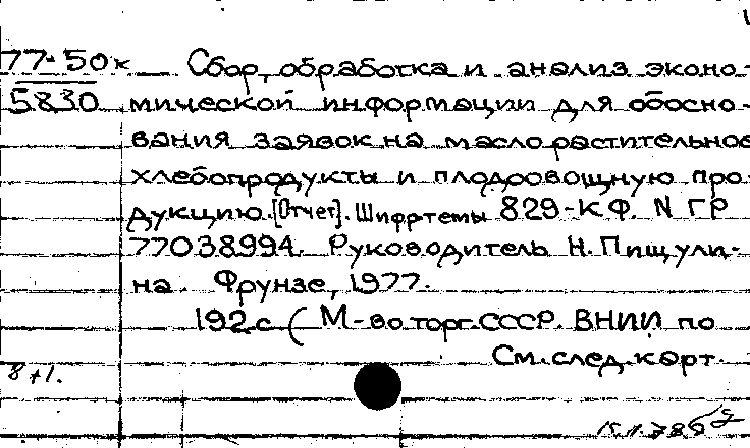 77-50к Сбор, обработка и анализ эконо-
5830 мической информации для обосно-
вания заявок на масло растительное
хлебопродукты и плодроовощную про-
дукцию.[Отчет]. Шифртемы 829-К.Ф. N ГР
77038994. Руководитель Н. Пищули-
на. Фрунзе, 1977.
192 с (М-во торг. СССР. ВНИИ по
См. след. карт.
8+1.